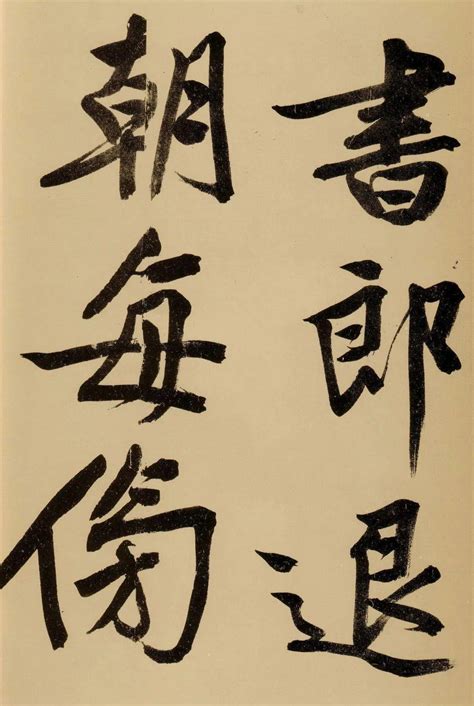 書郎退
朝每傍